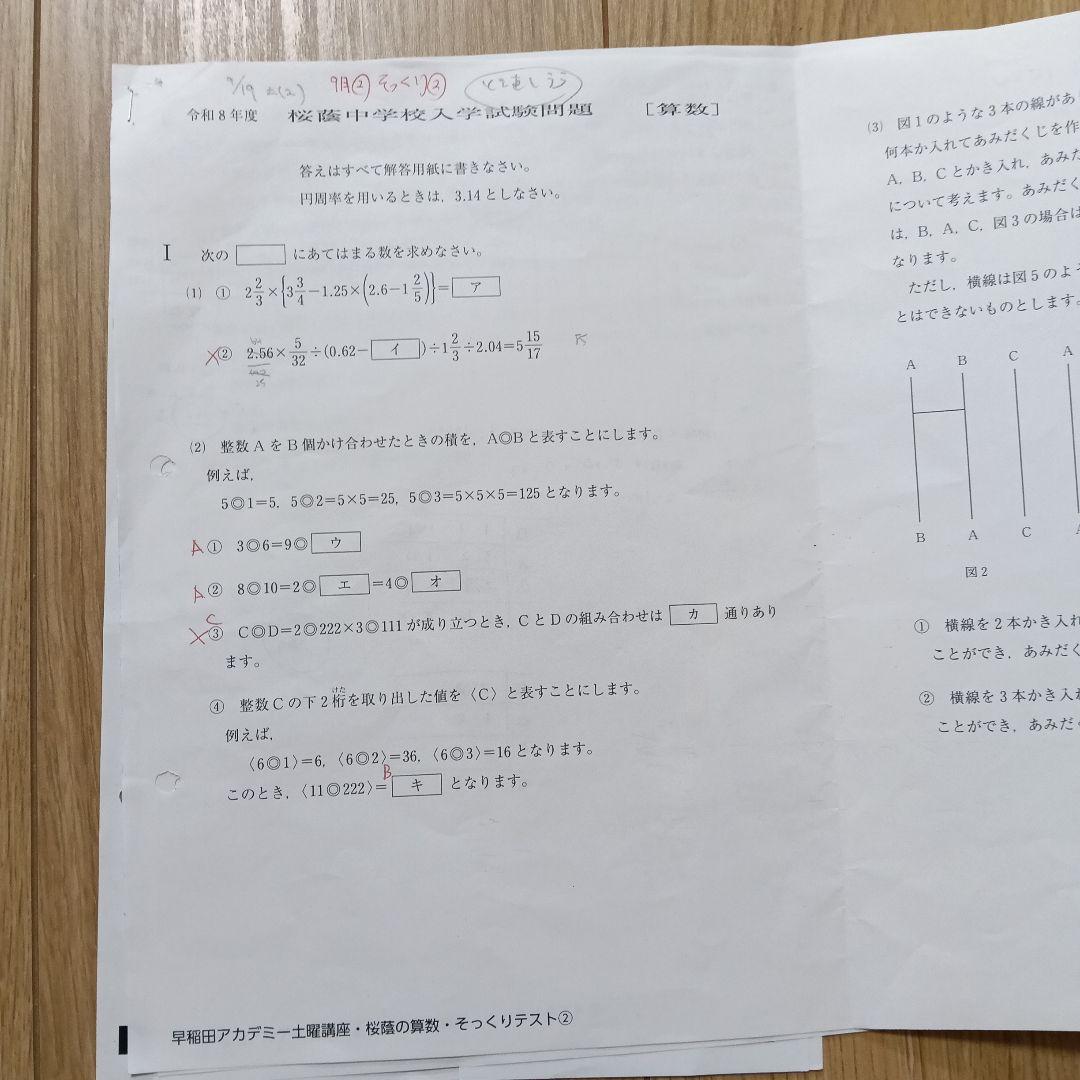 9/19 土(2) 9月② そっくり② とき直し
令和8年度 桜蔭中学校入学試験問題 [算数]
答えはすべて解答用紙に書きなさい。
円周率を用いるときは,3.14としなさい。
I 次の □ にあてはまる数を求めなさい。
(1) ① 2 2/3×{3 3/4−1.25×(2.6−1 2/5)}=ア
② 2.56×5/32÷(0.62−イ)÷1 2/3÷2.04=5 15/17
(2) 整数AをB個かけ合わせたときの積を,A◎Bと表すことにします。
例えば,
5◎1=5,5◎2=5×5=25,5◎3=5×5×5=125となります。
A ① 3◎6=9◎ウ
A ② 8◎10=2◎エ=4◎オ
C
③ C◎D=2◎222×3◎111が成り立つとき,CとDの組み合わせはカ通りあり
ます。
④ 整数Cの下2桁を取り出した値を〈C〉と表すことにします。
けた
例えば,
〈6◎1〉=6,〈6◎2〉=36,〈6◎3〉=16となります。
B
このとき,〈11◎222〉=キとなります。
早稲田アカデミー土曜講座・桜蔭の算数・そっくりテスト②
(3) 図1のような3本の線があ
何本か入れてあみだくじを作
A,B,Cとかき入れ,あみだ
について考えます。あみだく
は,B,A,C,図3の場合は
なります。
ただし,横線は図5のよう
とはできないものとします。
A B C A
B A C
図2
① 横線を2本かき入れ
ことができ,あみだく
② 横線を3本かき入れ
ことができ,あみだく